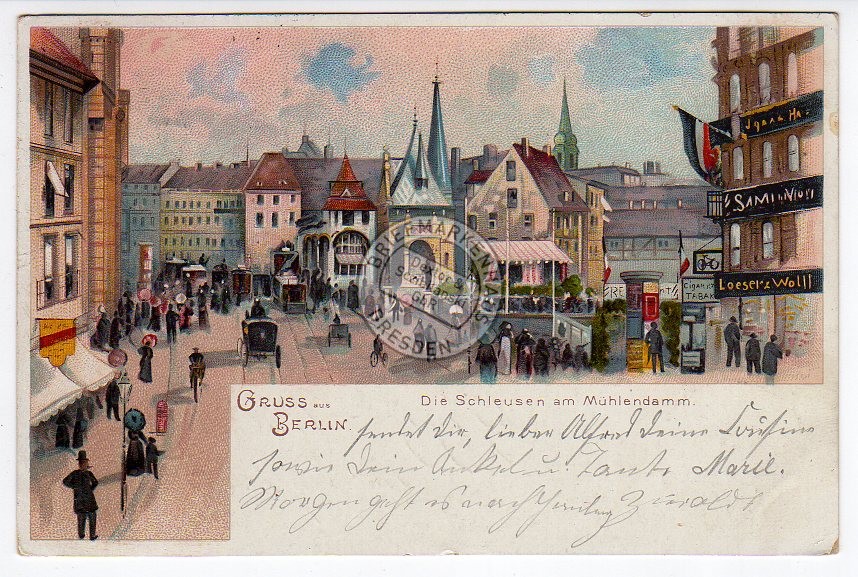 Jgana Ha
SAMI
Loeser & Wolff
Cigarren
TABAK
BRIEFMARKENHAUS
Schatulnski
GAR
DRESDEN
GRUSS aus
BERLIN.
Die Schleusen am Mühlendamm.
sendet Dir, lieber Alfred Deine Cousine
sowie Dein Onkel u. Tante Marie.
Morgen geht es nach